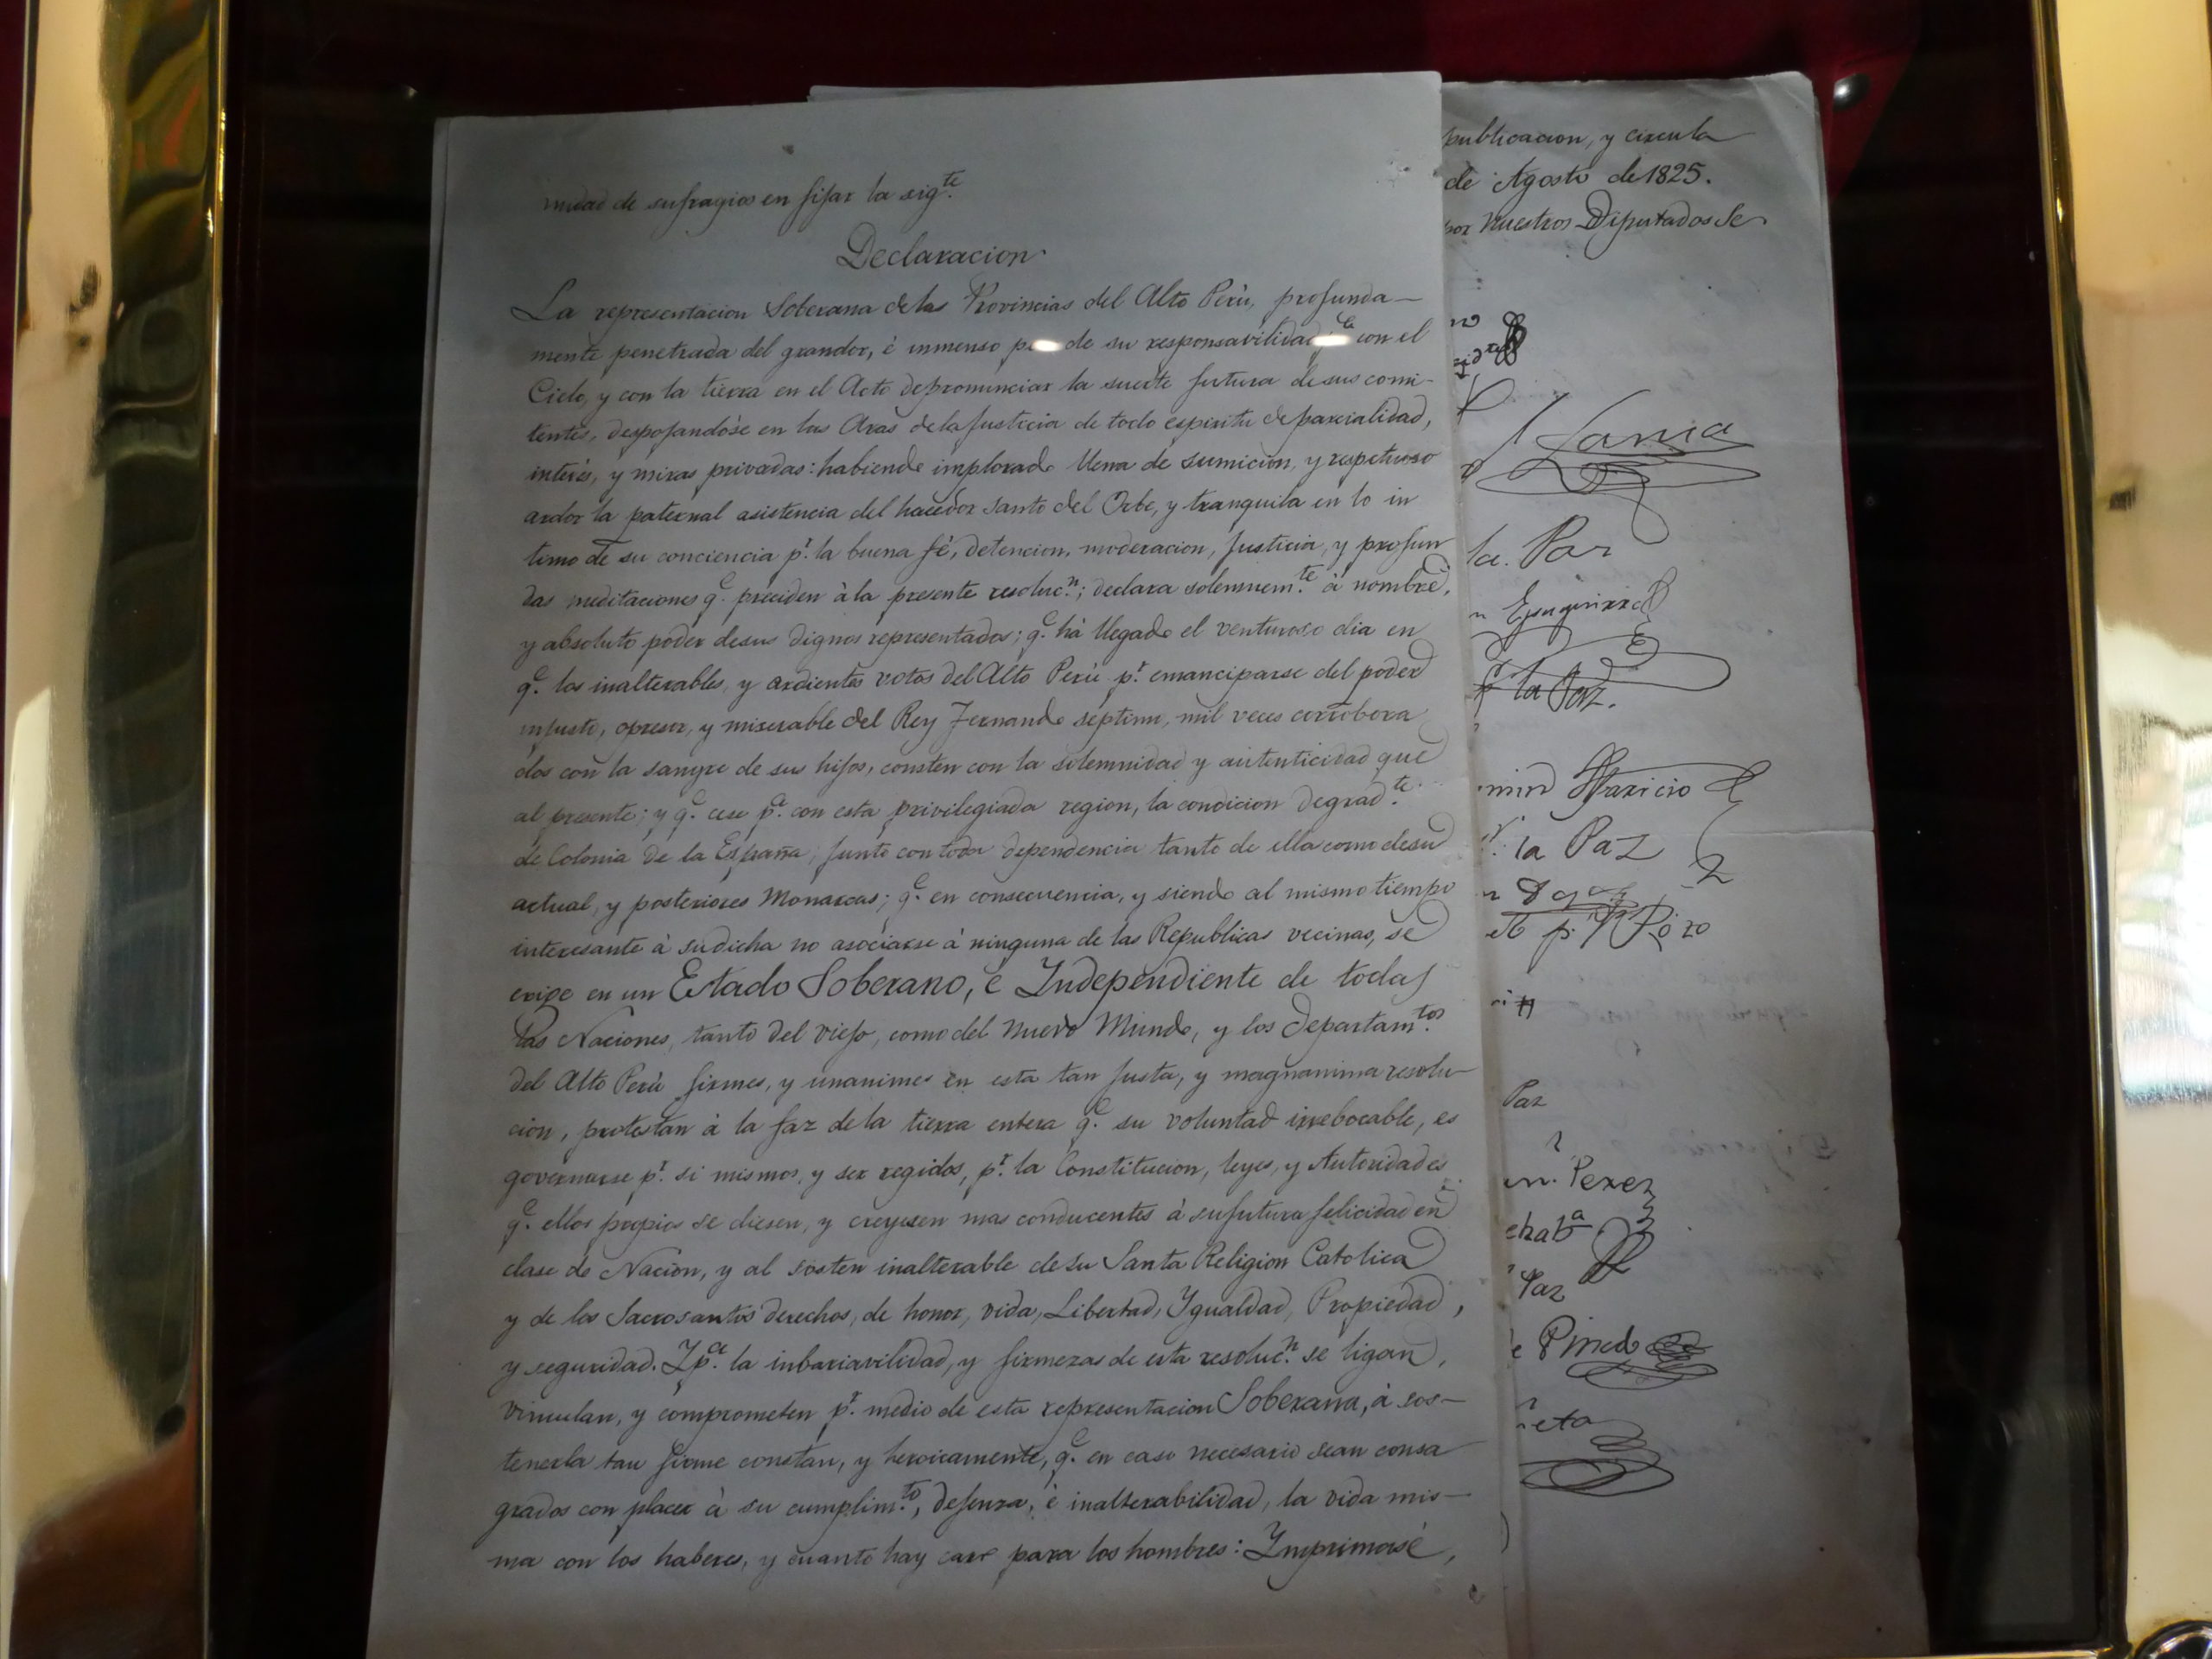 nidad de sufragios en fijar la sig.te
Declaracion
La representacion Soberana de las Provincias del Alto Perú, profunda-
mente penetrada del grandor, é inmenso de su responsavilidad con el
Cielo, y con la tierra en el Acto de pronunciar la suerte futura de sus comi-
tentes, despojandóse en las Aras de la Justicia de todo espiritu de parcialidad,
interés, y miras privadas: habiendo implorado llena de sumicion, y respetuoso
ardor la paternal asistencia del hacedor Santo del Orbe, y tranquila en lo in
timo de su conciencia p.r la buena fé, detencion, moderacion, Justicia, y profun
das meditaciones q.e preciden à la presente resoluc.n; declara solemnem.te à nombre,
y absoluto poder de sus dignos representados; q.e há llegado el venturoso dia en
q.e los inalterables, y ardientes votos del Alto Perú p.r emanciparse del poder
injusto, opresor, y miserable del Rey Fernando septimo, mil veces corrobora
dos con la sangre de sus hijos, consten con la solemnidad y autenticidad que
al presente; y q.e cese p.a con esta privilegiada region, la condicion degrad.te
de Colonia de la España, junto con toda dependencia tanto de ella como de su
actual, y posteriores Monarcas; q.e en consecuencia, y siendo al mismo tiempo
interesante à su dicha no asociarse à ninguna de las Republicas vecinas, se
erige en un Estado Soberano, é Independiente de todas
las Naciones, tanto del viejo, como del nuevo Mundo, y los Departam.tos
del Alto Perú firmes, y unanimes en esta tan Justa, y magnanima resolu-
cion, protestan à la faz de la tierra entera q.e su voluntad irrebocable, es
governarse p.r si mismos, y ser regidos, p.r la Constitucion, leyes, y Autoridades
q.e ellos propios se diesen, y creyesen mas conducentes à su futura felicidad en
clase de Nacion, y al sosten inalterable de su Santa Religion Catolica
y de los Sacrosantos derechos, de honor, vida, Libertad, Ygualdad, Propiedad,
y seguridad. Y p.a la inbariavilidad, y firmezas de esta resoluc.n se ligan,
vinculan, y comprometen p.r medio de esta representacion Soberana, à sos-
tenerla tan firme constan, y heroicamente, q.e en caso necesario sean consa
grados con placer à su cumplim.to, defensa, é inalterabilidad, la vida mis-
ma con los haberes, y cuanto hay caro para los hombres: Ymprimasé,
publicacion, y circula
de Agosto de 1825.
por nuestros Diputados Se
Lanza
la Paz
la Paz.
Aparicio
la Paz
Paz
Perez
chab.a
Paz
Pinedo